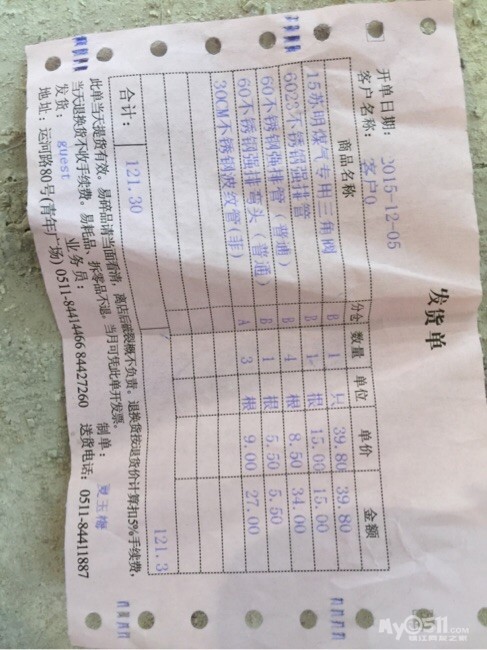 发货单
开单日期: 2015-12-05
客户名称: 客户0
商品名称 分仓 数量 单位 单价 金额
15苏明煤气专用三角阀 C 1 只 39.80 39.80
6023不锈钢强排管 B 1 根 15.00 15.00
60不锈钢强排管(普通) B 4 根 8.50 34.00
60不锈钢强排弯头(普通) B 1 根 5.50 5.50
30CM不锈钢波纹管(菲) A 3 根 9.00 27.00
合计: 121.30 121.3
此单当天提货有效。易碎品请当面看清,离店后破裂概不负责。退换货按退货价计算扣5%手续费,
当天退换货不收手续费。易耗品、拆零品不退。当月可凭此单开发票。
发货: guest 业务员: 制单: 夏玉梅
地址: 运河路80号(青年广场) 0511-84414466 84427260 送货电话: 0511-84411887
My0511.com
镇江网友之家